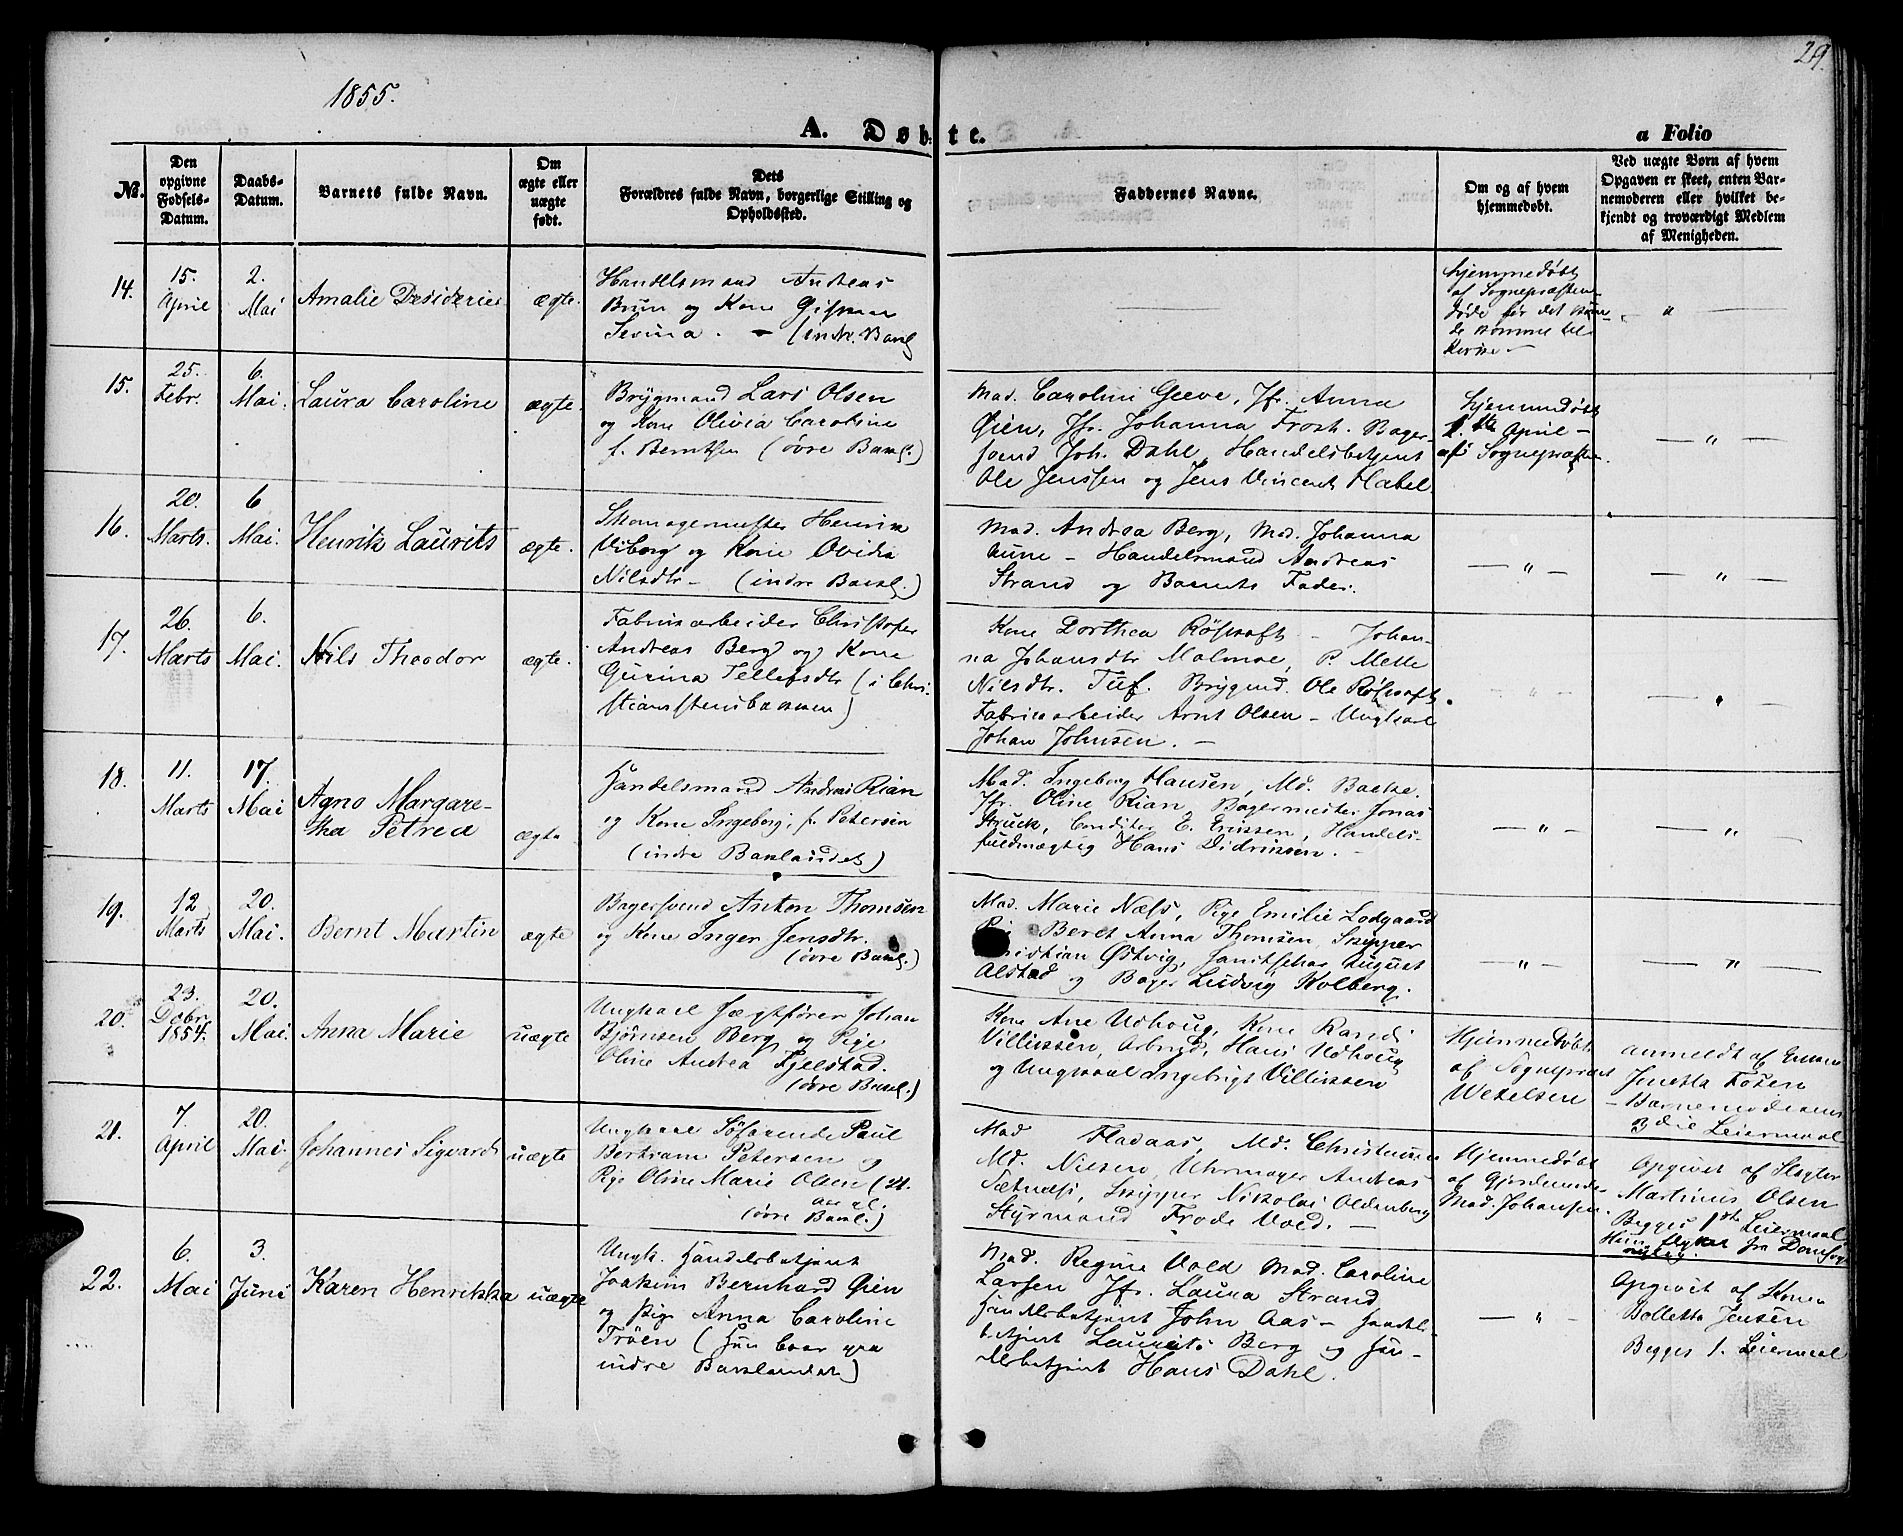 29.
1855.
A. Døbte.
a Folio
No.
Den opgivne Fødsels-Datum.
Daabs-Datum.
Barnets fulde Navn.
Om ægte eller uægte født.
Dets Forældres fulde Navn, borgerlige Stilling og Opholdssted.
Faddernes Navne.
Om og af hvem hjemmedøbt.
Ved uægte Børn af hvem Opgaven er skeet, enten Barnemoderen eller hvilket bekjendt og troværdigt Medlem af Menigheden.
14.
15. April
2. Mai
Amalie Desideria
ægte.
Handelsmand Andreas
Brun og Kone
Sevina. – (indre. Bakl
hjemmedøbt
af Sognepræsten
døde før det kun-
de komme til
Kirke –
"
15.
25. Febr.
6. Mai.
Laura Caroline
ægte.
Brygmand Lars Olsen
og Kone Olivia Caroline
f. Berntsen (øvre Bakl.)
Mad. Caroline Greve, Jfr. Anna
Øien, Jfr. Johanna Frost. Bager-
svend Joh. Dahl, Handelsbetjent
Ole Jenssen og Jens Vincent Habel.
hjemmedøbt
1ste April –
af Sognepræsten.
— " —
16.
20. Marts.
6 Mai.
Henrik Laurits
ægte.
Skomagermester Henrik
Viborg og Kone Ovidia
Nilsdtr – (indre Bakl.)
Mad. Andrea Berg, Mad. Johanna
Aune – Handelsmand Andreas
Strand og Barnets Fader.
— " —
— " —
17.
26. Marts
6. Mai.
Nils Theodor
ægte.
Fabrikarbeider Christofer
Andreas Berg og Kone
Gurina Tellefsdtr (i Chri-
stianstensbakken)
Kone Dorthea Røskaft – Johan-
na Johansdtr Malmoe, P. Mette
Nilsdtr. Tuf. Brygmd. Ole Røskaft
Fabrikarbeider Arnt Olsen – Ungkarl
Johan Johnsen. –
"
— " —
18.
11. Marts
17. Mai
Agno Margare-
tha Petrea
ægte
Handelsmand Andreas Rian
og Kone Ingeborg, f. Petersen
(indre Baklandet)
Mad. Ingeborg Hansen, Md. Bakke
Jfr. Oline Rian, Bagermester Jonas
Struck, Conditor E. Erikssen, Handels-
fuldmægtig Hans Didrikssen. –
— " —
— " —
19.
12 Marts
20. Mai.
Bernt Martin
ægte
Bagersvend Anton Thomsen
og Kone Inger Jensdtr.
(øvre Bakl.)
Mad. Marie Næss, Pige Emilie Lodgaard
Beret Anna Thomsen, Skipper
Christian Østvig, Janitschar August
Alstad og Bager Ludvig Kolberg.
— " —
— " —
20.
23. Decbr. 1854.
20. Mai.
Anna Marie
uægte
Ungkarl Jægtfører Johan
Bjørnsen Berg og Pige
Oline Andrea Fjelstad.
(øvre Bakl.)
Kone Ane Udhoug, Kone Randi
Villikssen, Arbmd. Hans Udhoug
og Ungkarl Ingebrigt Villikssen
Hjemmedøbt
af Sognepræst
Wexelsen
anmeldt af Emma
Jenetta Rosen
– Barnemoderens
3die Leiermaal
21.
7. April
20. Mai.
Johannes Sigvard
uægte
Ungkarl Søfarende Paul
Bertram Petersen og
Pige Oline Marie Olsen (21.
Aar gl.
(øvre Bakl.)
Mad Fladaas, Md. Christensen
Md. Nielsen, Uhrmager Andreas
Sætnæss, Skipper Nikolai Oldenberg
Styrmand Frode Vold. –
Hjemmedøbt
af Gjordemoder
Mad. Johansen.
Opgivet af Slagter
Martinus Olsen
Begges 1ste Leiermaal
Hun flyttet fra Domsog
22.
6. Mai
3. Juni
Karen Henrikka
uægte
Ungk. Handelsbetjent
Joakim Bernhard Øien
og Pige Anna Caroline
Trøen (Hun boer paa
indre Baklandet)
Mad. Regine Vold Mad. Caroline
Larsen Jfr. Laura Strand
Handelsbetjent John Aas – Handels-
betjent Laurits Berg og Han-
delsbetjent Hans Dahl.
— " —
Opgivet af Kone
Bolletta Jensen
Begges 1. Leiermaal